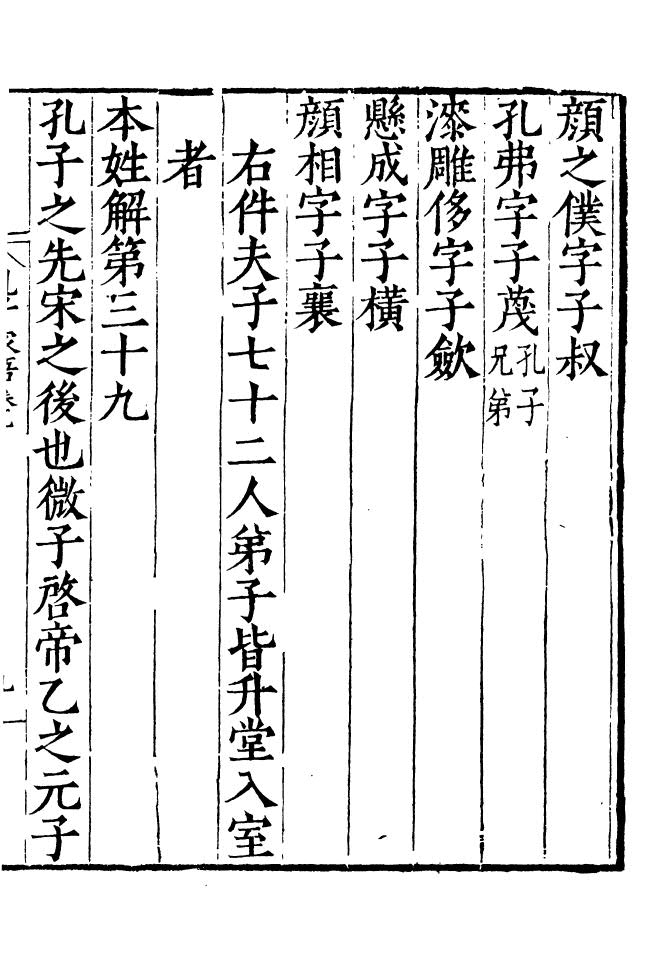 顔之僕字子叔
孔弗字子蔑孔子兄弟
漆雕侈字子歛
懸成字子橫
顔相字子襄
右件夫子七十二人弟子皆升堂入室
者
本姓解第三十九
孔子之先宋之後也微子啓帝乙之元子